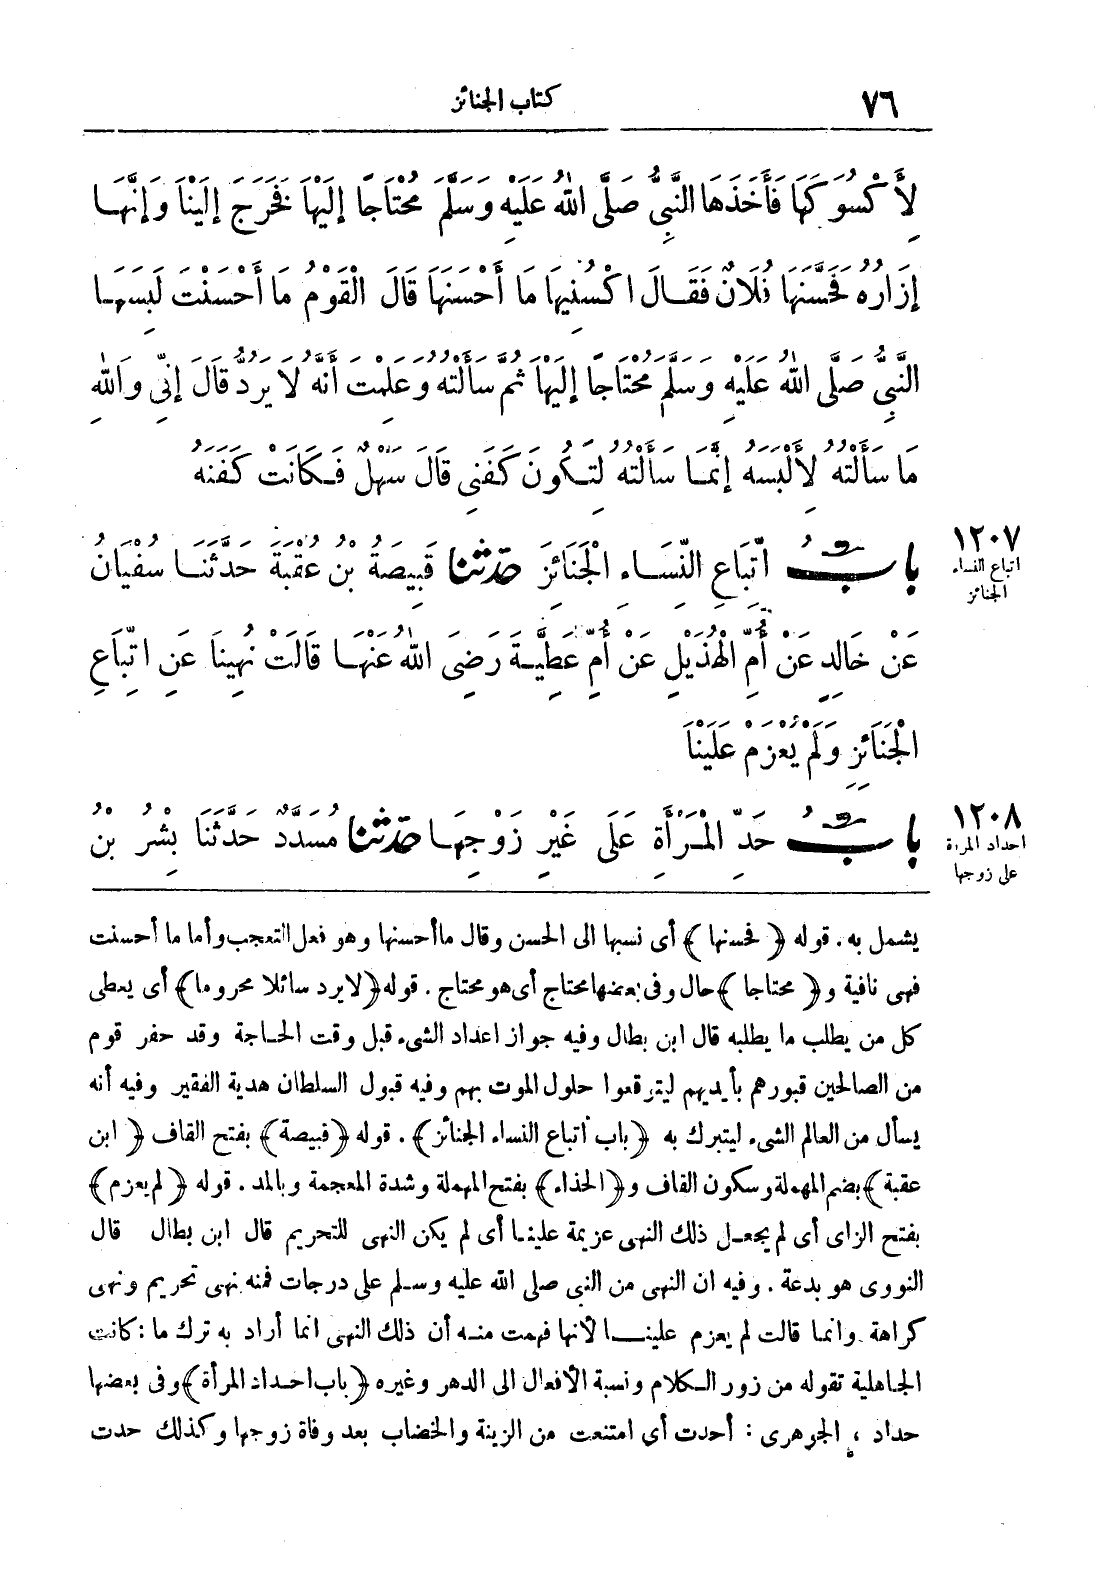 ٧٦
كتاب الجنائز
لِأَكْسُوَكَهَا فَأَخَذَهَا النَّبِيُّ صَلَّى اللهُ عَلَيْهِ وَسَلَّمَ مُحْتَاجًا إِلَيْهَا فَخَرَجَ إِلَيْنَا وَإِنَّهَا
إِزَارُهُ فَحَسَّنَهَا فُلَانٌ فَقَالَ اكْسُنِيهَا مَا أَحْسَنَهَا قَالَ الْقَوْمُ مَا أَحْسَنْتَ لَبِسَهَا
النَّبِيُّ صَلَّى اللهُ عَلَيْهِ وَسَلَّمَ مُحْتَاجًا إِلَيْهَا ثُمَّ سَأَلْتَهُ وَعَلِمْتَ أَنَّهُ لَا يَرُدُّ قَالَ إِنِّي وَاللهِ
مَا سَأَلْتُهُ لِأَلْبَسَهُ إِنَّمَا سَأَلْتُهُ لِتَكُونَ كَفَنِي قَالَ سَهْلٌ فَكَانَتْ كَفَنَهُ
١٢٠٧
اتباع النساء
الجنائز
بابُ اتِّبَاعِ النِّسَاءِ الْجَنَائِزَ حدثنا قَبِيصَةُ بْنُ عُقْبَةَ حَدَّثَنَا سُفْيَانُ
عَنْ خَالِدٍ عَنْ أُمِّ الْهُذَيْلِ عَنْ أُمِّ عَطِيَّةَ رَضِيَ اللهُ عَنْهَا قَالَتْ نُهِينَا عَنِ اتِّبَاعِ
الْجَنَائِزِ وَلَمْ يُعْزَمْ عَلَيْنَا
١٢٠٨
احداد المرءة
على زوجها
بابُ حَدِّ الْمَرْأَةِ عَلَى غَيْرِ زَوْجِهَا حدثنا مُسَدَّدٌ حَدَّثَنَا بِشْرُ بْنُ
يشمل به. قوله ﴿فحسنها﴾ أى نسبها الى الحسن وقال ما أحسنها وهو فعل التعجب وأما ما أحسنت
فهى نافية و﴿محتاجا﴾ حال وفى بعضها محتاج أى هو محتاج. قوله ﴿لا يرد سائلا محروما﴾ أى يعطى
كل من يطلب ما يطلبه قال ابن بطال وفيه جواز اعداد الشىء قبل وقت الحاجة وقد حفر قوم
من الصالحين قبورهم بأيديهم ليترقعوا حلول الموت بهم وفيه قبول السلطان هدية الفقير وفيه أنه
يسأل من العالم الشىء ليتبرك به ﴿باب أتباع النساء الجنائز﴾. قوله ﴿قبيصة﴾ بفتح القاف ﴿ابن
عقبة﴾ بضم المهملة وسكون القاف و﴿الحذاء﴾ بفتح المهملة وشدة المعجمة وبالمد. قوله ﴿لم يعزم﴾
بفتح الزاى أى لم يجعل ذلك النهى عزيمة علينا أى لم يكن النهى للتحريم قال ابن بطال قال
النووى هو بدعة. وفيه ان النهى من النبى صلى الله عليه وسلم على درجات فمنه نهى تحريم ونهى
كراهة. وانما قالت لم يعزم علينا لأنها فهمت منه أن ذلك النهى انما أراد به ترك ما كانت
الجاهلية تقوله من زور الكلام ونسبة الأفعال الى الدهر وغيره ﴿باب احداد المرأة﴾ وفى بعضها
حداد، الجوهرى: أحدت أى امتنعت من الزينة والخضاب بعد وفاة زوجها وكذلك حدت